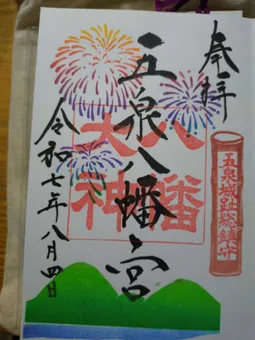 奉拝
五泉城趾総鎮守
五泉八幡宮
八幡
大神
令和七年八月四日